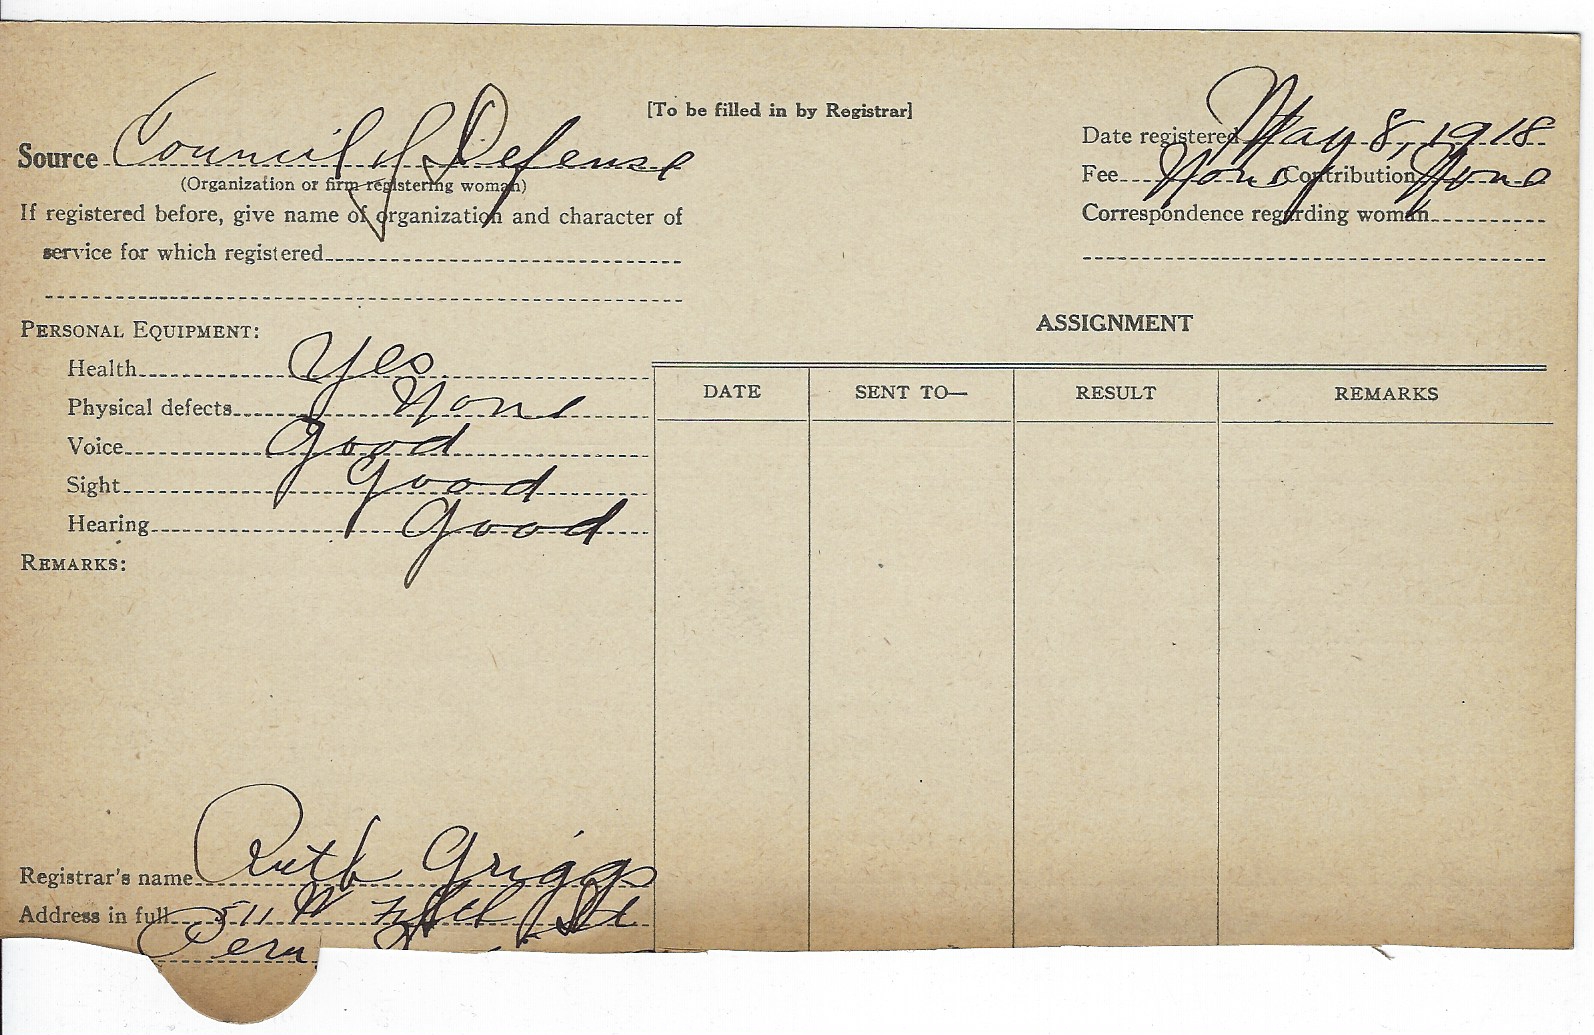 [To be filled in by Registrar]
Source Council of Defense
(Organization or firm registering woman)
If registered before, give name of organization and character of
service for which registered
Date registered May 8, 1918
Fee None Contribution None
Correspondence regarding woman
PERSONAL EQUIPMENT:
Health Yes
Physical defects None
Voice Good
Sight Good
Hearing Good
REMARKS:
ASSIGNMENT
DATE SENT TO— RESULT REMARKS
Registrar's name Ruth Griggs
Address in full 511 W Fifth St
Peru